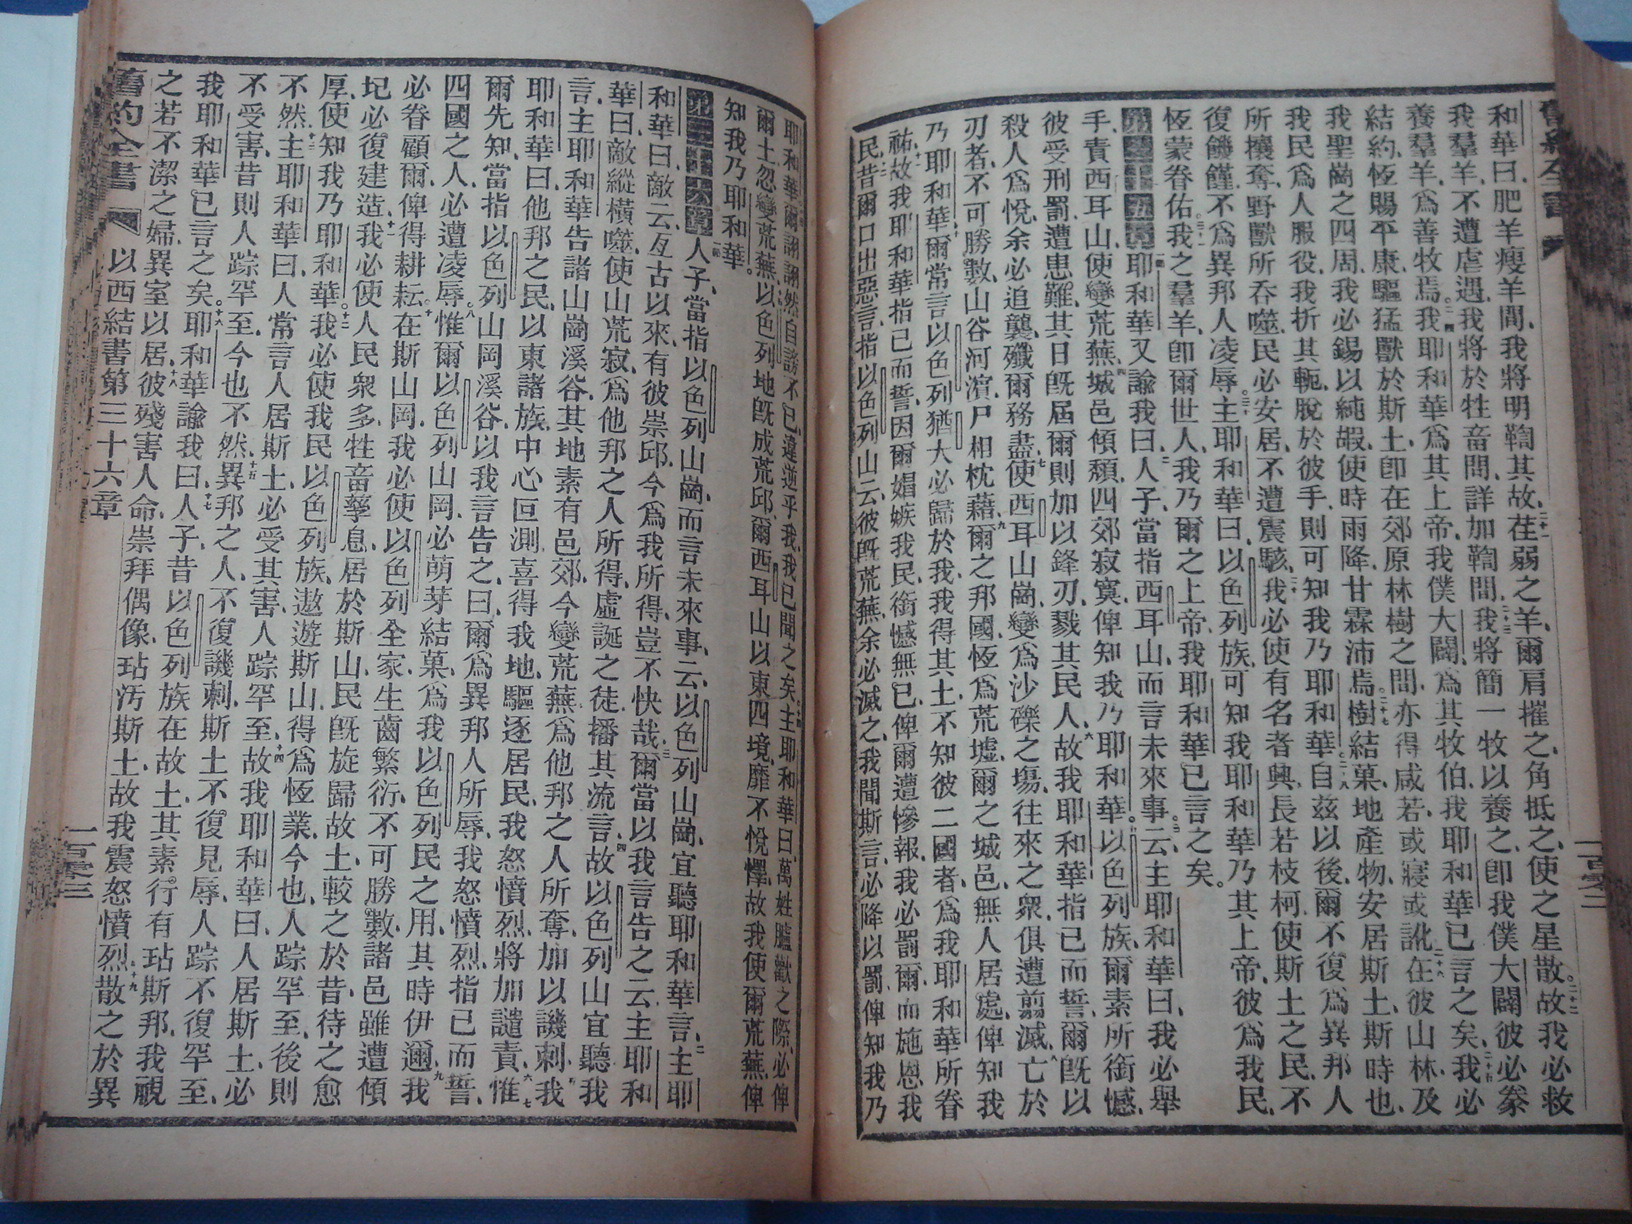 舊約全書
一百零二
和華曰肥羊瘦羊間我將明鞫其故荏弱之羊爾肩摧之角抵之使之星散故我必救
我羣羊不遭虐遇我將於牲畜間詳加鞫問我將簡一牧以養之卽我僕大闢彼必豢
養羣羊爲善牧焉我耶和華爲其上帝我僕大闢爲其牧伯我耶和華已言之矣我必
結約恆賜平康驅猛獸於斯土卽在郊原林樹之間亦得咸若或寢或訛在彼山林及
我聖崗之四周我必錫以純嘏使時雨降甘霖沛焉樹結菓地產物安居斯土斯時也
我民爲人服役我折其軛脫於彼手則可知我乃耶和華自茲以後爾不復爲異邦人
所攘奪野獸所吞噬民必安居不遭震駭我必使有名者興長若枝柯使斯土之民不
復饑饉不爲異邦人凌辱主耶和華曰以色列族可知我耶和華乃其上帝彼爲我民
恆蒙眷佑我之羣羊卽爾世人我乃爾之上帝我耶和華已言之矣
第三十五章耶和華又諭我曰人子當指西耳山而言未來事云主耶和華曰我必舉
手責西耳山使變荒蕪城邑傾頹四郊寂寞俾知我乃耶和華以色列族爾素所銜憾
彼受刑罰遭患難其日旣屆爾則加以鋒刃戮其民人故我耶和華指己而誓爾旣以
殺人爲悅余必追襲殲爾務盡使西耳山崗變爲沙礫之場往來之衆俱遭翦滅亡於
刃者不可勝數山谷河濱尸相枕藉爾之邦國恆爲荒墟爾之城邑無人居處俾知我
乃耶和華爾常言以色列猶大必歸於我我得其土不知彼二國者爲我耶和華所眷
祐故我耶和華指己而誓因爾娼嫉我民銜憾無已俾爾遭慘報我必罰爾而施恩我
民昔爾口出惡言指以色列山云彼旣荒蕪余必滅之我聞斯言必降以罰俾知我乃
耶和華爾謝謝然自誇不已違逆乎我我已聞之矣主耶和華曰萬姓臚歡之際必俾
爾土忽變荒蕪以色列地旣成荒邱爾西耳山以東四境靡不悅懌故我使爾荒蕪俾
知我乃耶和華
第三十六章人子當指以色列山崗而言未來事云以色列山崗宜聽耶和華言主耶
和華曰敵云亙古以來有彼崇邱今爲我所得豈不快哉爾當以我言告之云主耶和
華曰敵縱橫噬使山荒寂爲他邦之人所得虛誕之徒播其流言故以色列山宜聽我
言主耶和華告諸山崗溪谷其地素有邑郊今變荒蕪爲他邦之人所奪加以譏刺我
耶和華曰他邦之民以東諸族中心叵測喜得我地驅逐居民我怒憤烈將加譴責惟
爾先知當指以色列山岡溪谷以我言告之曰爾爲異邦人所辱我怒憤烈指己而誓
四國之人必遭凌辱惟爾以色列山岡必萌芽結菓爲我以色列民之用其時伊邇我
必眷顧爾俾得耕耘在斯山岡我必使以色列全家生齒繁衍不可勝數諸邑雖遭傾
圮必復建造我必使人民衆多牲畜孳息居於斯山民旣旋歸故土較之於昔待之愈
厚使知我乃耶和華我必使我民以色列族遨遊斯山得爲恆業今也人踪罕至後則
不然主耶和華曰人常言人居斯土必受其害人踪罕至故我耶和華曰人居斯土必
不受害昔則人踪罕至今也不然異邦之人不復譏刺斯土不復見辱人踪不復罕至
我耶和華已言之矣耶和華諭我曰人子昔以色列族在故土其素行有玷斯邦我覩
之若不潔之婦異室以居彼殘害人命崇拜偶像玷汚斯土故我震怒憤烈散之於異
舊約全書
以西結書第三十六章
一百零三